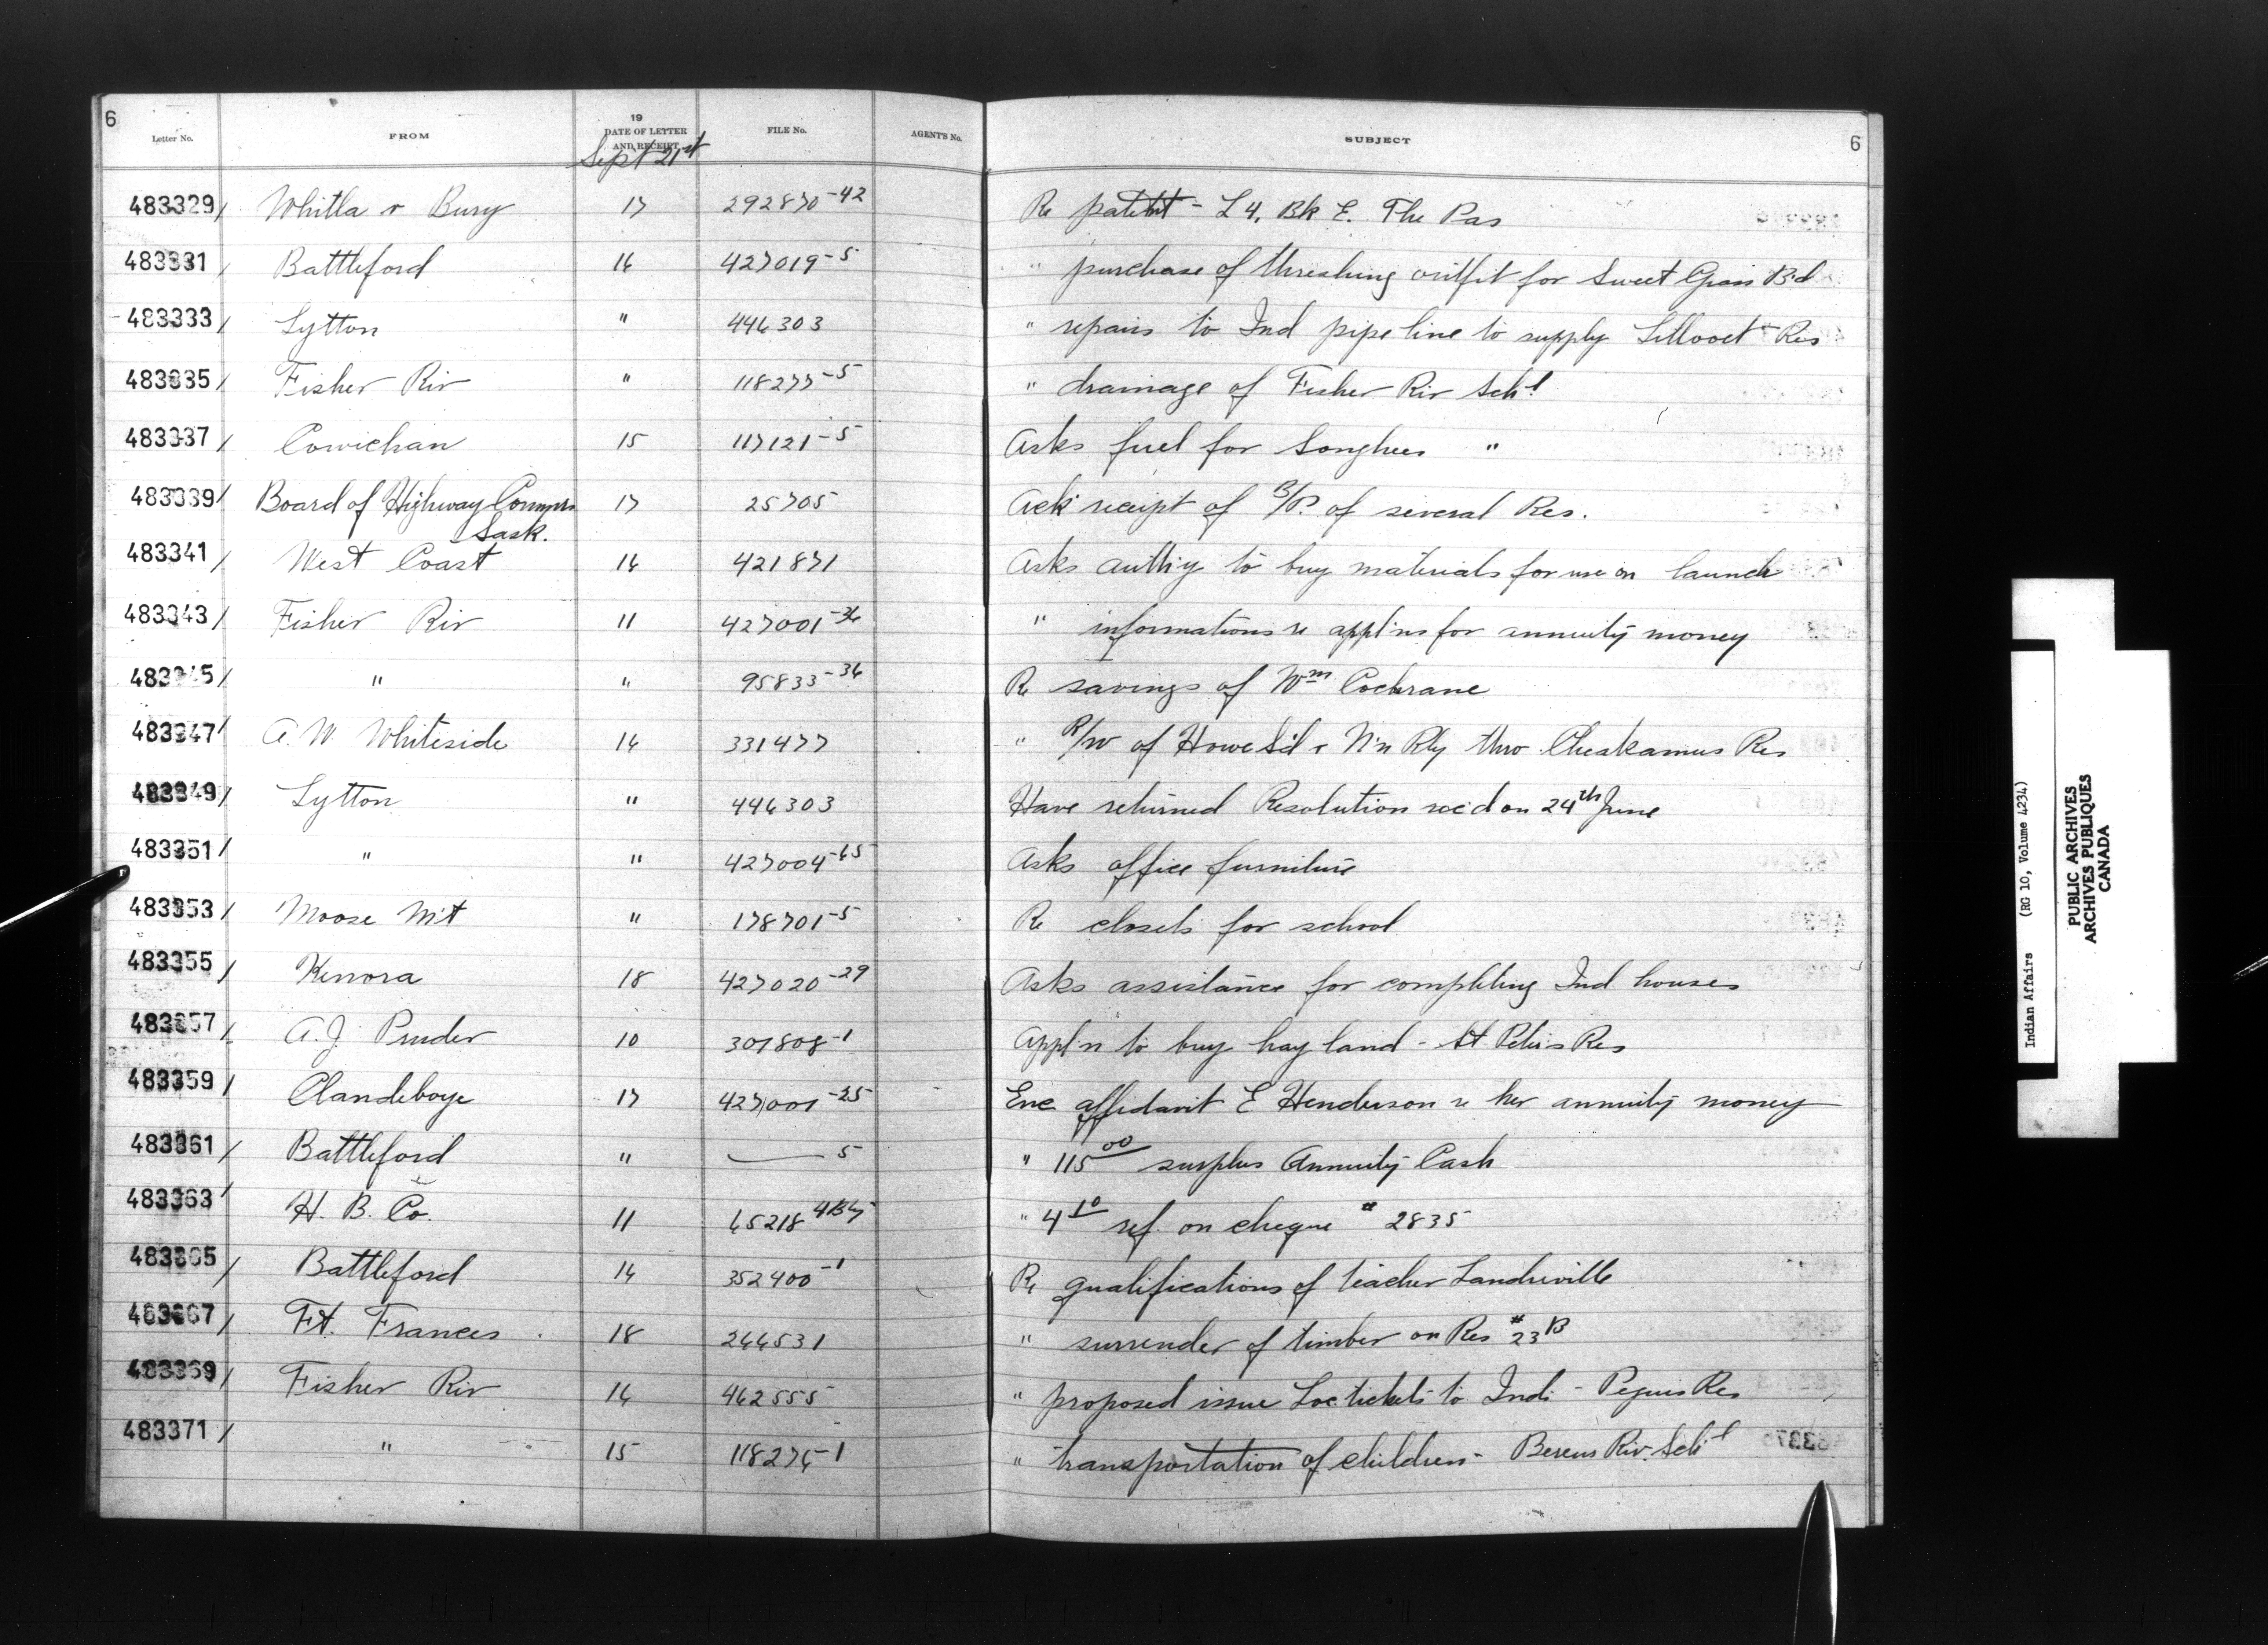 6
Letter No. FROM 19 DATE OF LETTER AND RECEIPT FILE No. AGENT'S No. SUBJECT 6
Sept 21st
483329/ Whitla & Bury 17 292870-42 Re patent - L 4, Bk E. The Pas
483331/ Battleford 16 427019-5 " purchase of threshing outfit for Sweet Grass B'd
483333/ Lytton " 446303 " repairs to Ind pipe line to supply Lillooet Res
483335/ Fisher Riv " 118277-5 " drainage of Fisher Riv Sch'l
483337/ Cowichan 15 117121-5 Asks fuel for Songhees "
483339/ Board of Highway Commrs Sask. 17 25705 Ack receipt of B/P. of several Res.
483341/ West Coast 16 421871 Asks auth'y to buy materials for use on launch
483343/ Fisher Riv 11 427001-36 " informations re appl'ns for annuity money
483345/ " " 95833-36 Re savings of Wm Cochrane
483347/ A. W. Whiteside 16 331477 " R/W of Howe S'd & N'n Rly thro Cheakamus Res
483349/ Lytton " 446303 Have returned Resolution rec'd on 24th June
483351/ " " 427004-65 Asks office furniture
483353/ Moose M't " 178701-5 Re closets for school
483355/ Kenora 18 427020-29 Asks assistance for completing Ind houses
483357/ A. J. Pruder 10 301808-1 Appl'n to buy hay land - St Peters Res
483359/ Clandeboye 17 427001-25 Enc affidavit E Henderson re her annuity money
483361/ Battleford " — 5 " 115 00 surplus Annuity Cash
483363/ H. B. Co. 11 65218 " 4 10 ref. on cheque # 2835
483365/ Battleford 16 352400-1 Re qualifications of teacher Landreville
483367/ Ft. Frances 18 266531 " surrender of timber on Res #23B
483369/ Fisher Riv 16 462555 " proposed issue Loc tickets to Inds - Peguis Res
483371/ " 15 118276-1 " transportation of children - Berens Riv. Sch'l
Indian Affairs (RG 10, Volume 4234)
PUBLIC ARCHIVES
ARCHIVES PUBLIQUES
CANADA